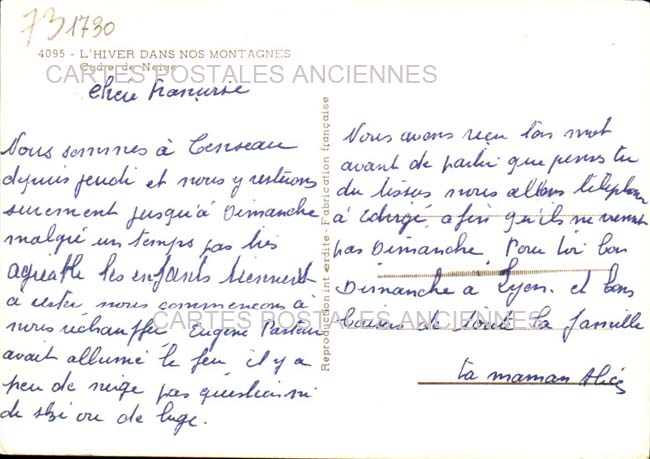 731730
4095 - L'HIVER DANS NOS MONTAGNES
Cadre de Neige
CARTES POSTALES ANCIENNES
chère Françoise
Nous sommes à Censeau
depuis jeudi et nous y resterons
surement jusqu'à Dimanche
malgré un temps pas très
agréable les enfants tiennent
à rester nous commencons à
nous réchauffer Eugène
avait allumé le feu, il y a
peu de neige pas question ni
de ski ou de luge.
Reproduction interdite - Fabrication française
Nous avons reçu ton mot
avant de partir que penses tu
du tissus nous allons téléphoner
à afin qu'ils ne viennent
pas Dimanche. Pour toi bon
Dimanche à Lyon. et bons
baisers de toute la famille
ta maman Alice
CARTES POSTALES ANCIENNES